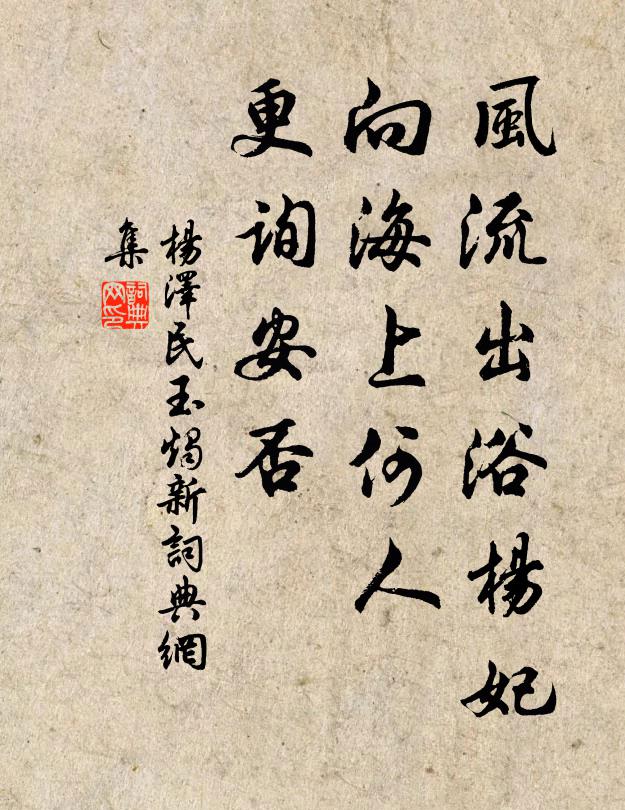 風流出浴楊妃
向海上何人
更詢安否
楊澤民玉燭新詞典網
集
詞典
网印